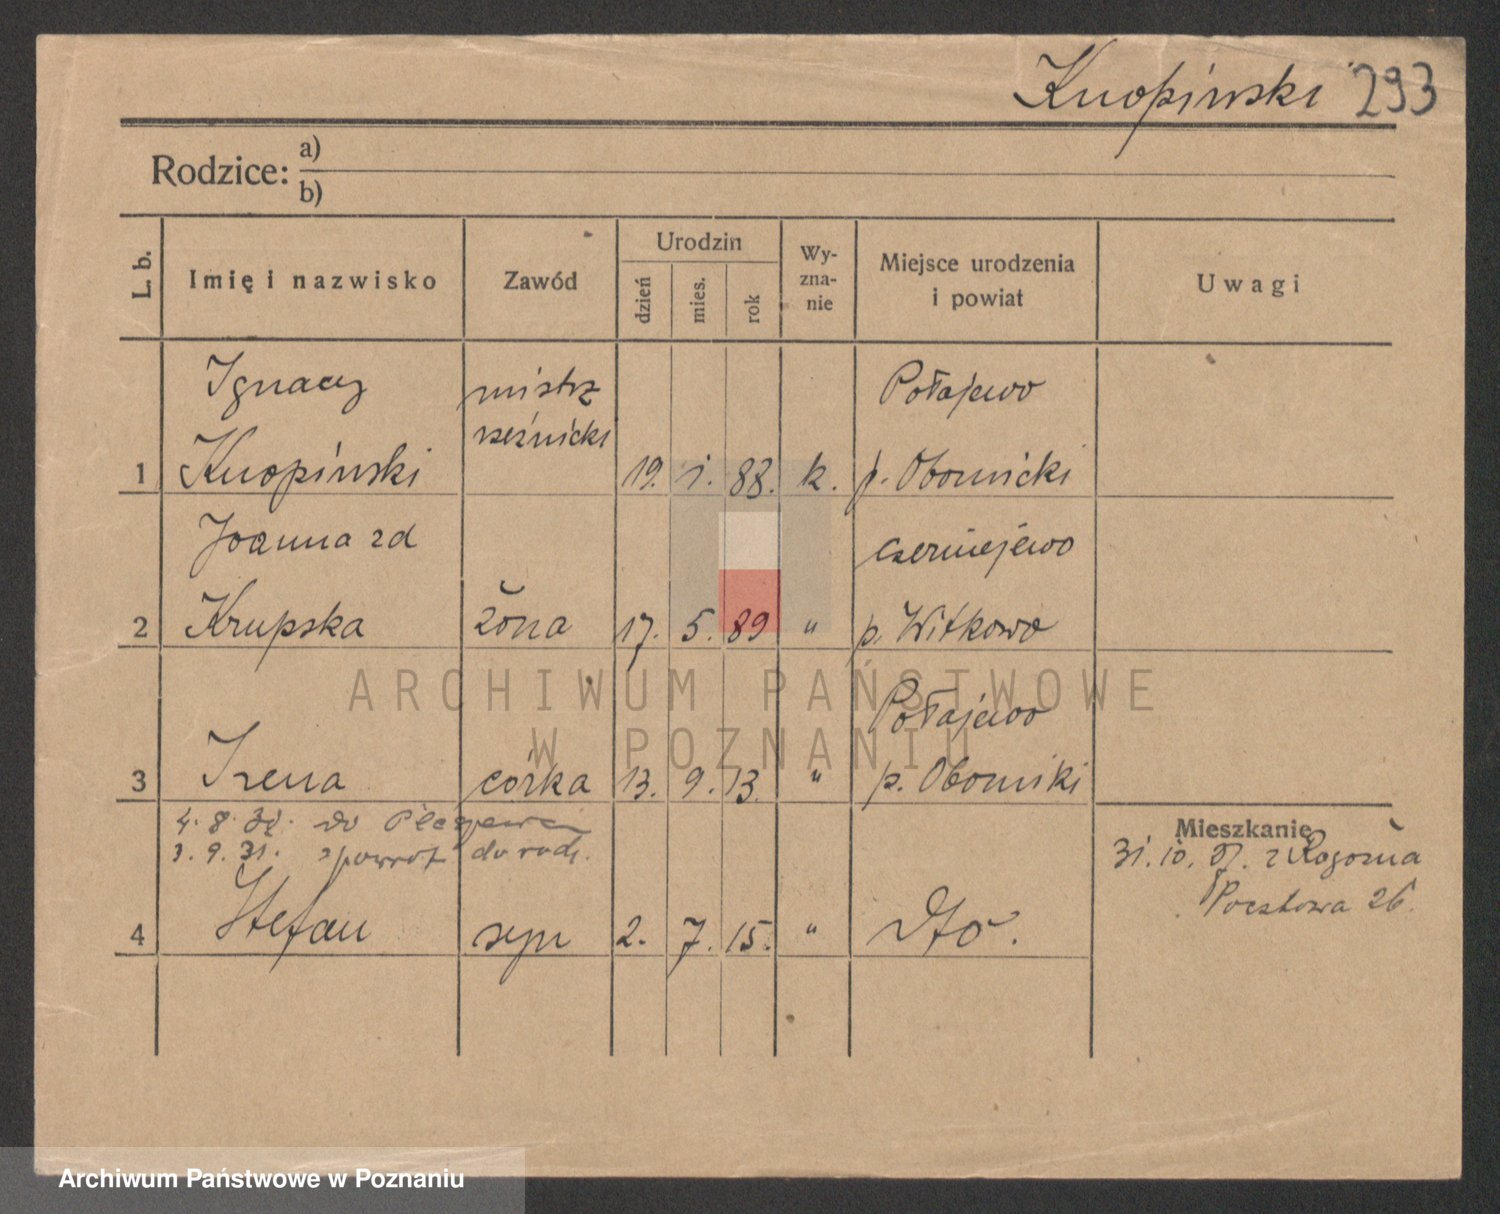 Knopiński 293
Rodzice: a)
b)
L. b. Imię i nazwisko Zawód Urodzin dzień mies. rok Wy-zna-nie Miejsce urodzenia i powiat Uwagi
Ignacy mistrz Połajewo
rzeźnicki
1 Knopiński 19. 1. 88. k. p. Obornicki
Joanna zd Czerniejewo
2 Krupska żona 17. 5. 89 " p. Witkowo
ARCHIWUM PAŃSTWOWE
Połajewo
W POZNANIU
3 Irena córka 13. 9. 13. " p. Oborniki
4. 8. do
Mieszkanie
3. 9. 31. zpowrot do rodz.
31. 10. 27. z Rogoźna
Pocztowa 26.
4 Stefan syn 2. 7. 15. " dto.
Archiwum Państwowe w Poznaniu